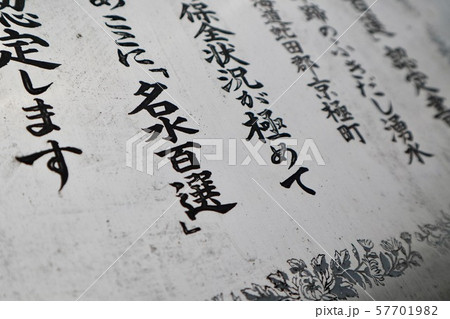 百選 認定書
蹄のふきだし湧水
海道虻田郡京極町
保全状況が極めて
めここに「名水百選」
認定します
PIXTA
pixta.jp - 57701982